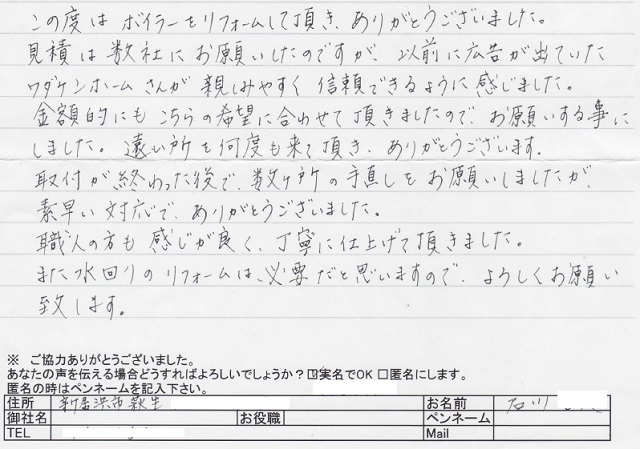 この度は ボイラーをリフォームして頂き、ありがとうございました。
見積は数社にお願いしたのですが、以前に広告が出ていた
ワダケンホームさんが親しみやすく信頼できるように感じました。
金額的にもこちらの希望に合わせて頂きましたので、お願いする事に
しました。遠い所を何度も来て頂き、ありがとうございます。
取付が終わった後で、数ヶ所の手直しをお願いしましたが、
素早い対応で、ありがとうございました。
職人の方も感じが良く、丁寧に仕上げて頂きました。
また水回りのリフォームは、必要だと思いますので、よろしくお願い
致します。
※ ご協力ありがとうございました。
あなたの声を伝える場合どうすればよろしいでしょうか？☑実名でOK □匿名にします。
匿名の時はペンネームを記入下さい。
住所 新居浜市萩生 お名前 石川
御社名 お役職 ペンネーム
TEL Mail